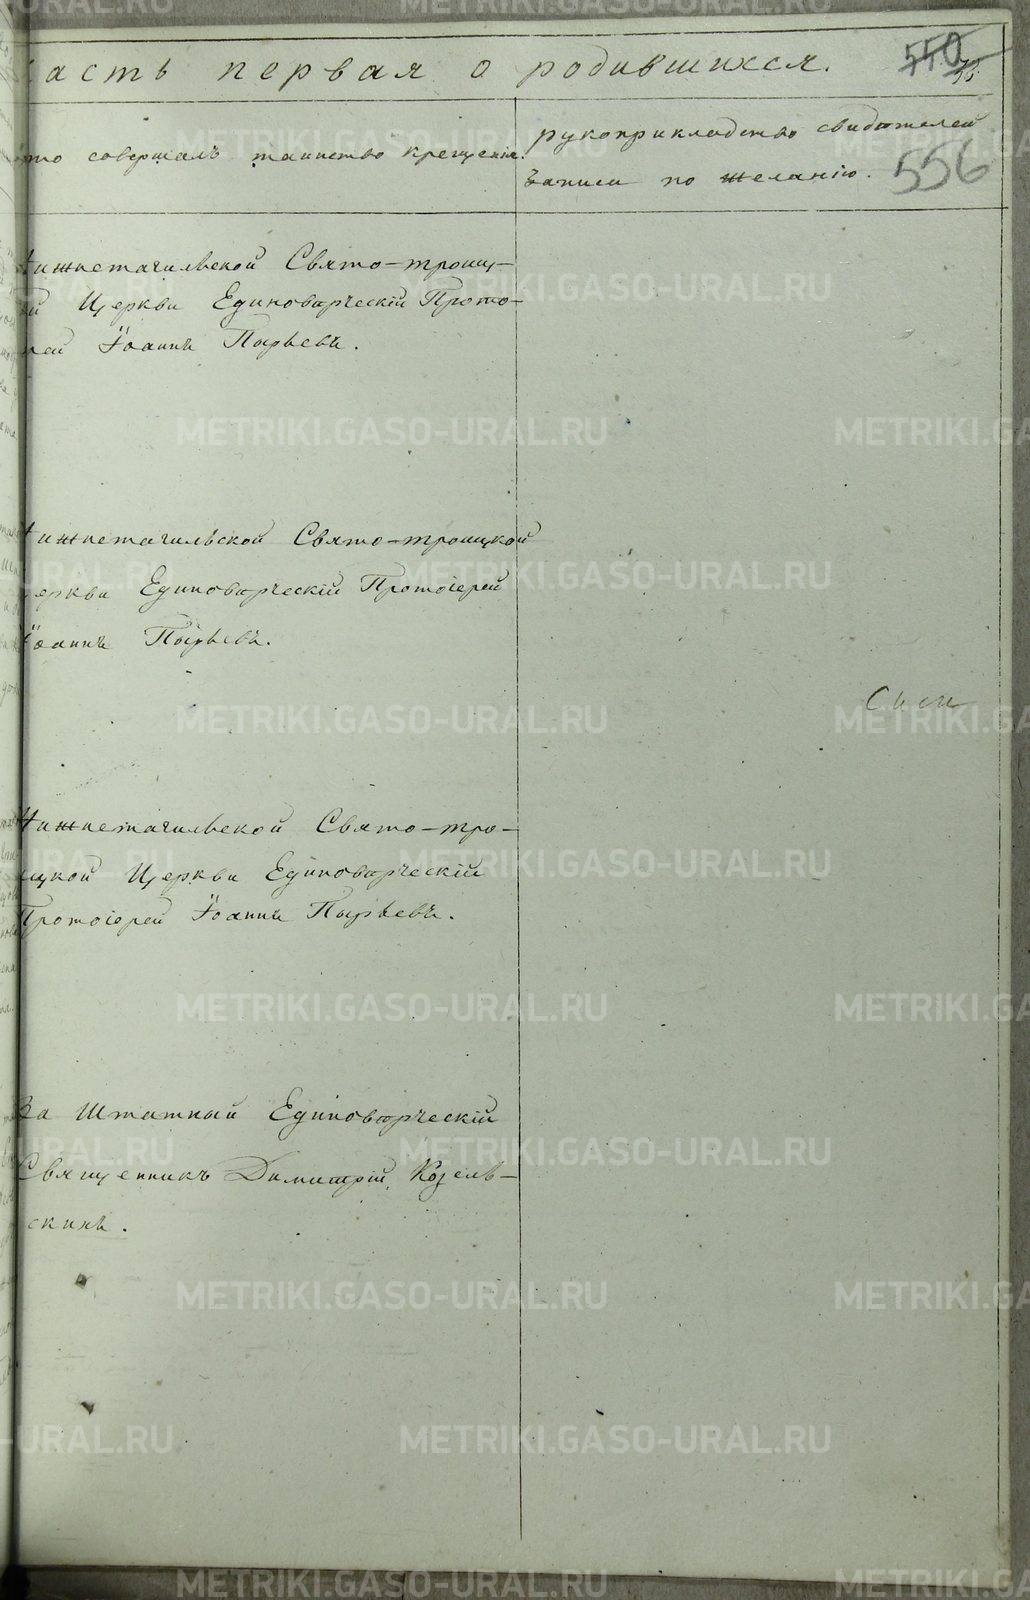 часть первая о родившихся.
550
556
кто совершалъ таинство крещенія.
рукоприкладство свидѣтелей
записи по желанію.
Нижнетагильской Свято-троиц-
кой Церкви Единовѣрческій Прото-
іерей Іоаннъ Пырьевъ.
Нижнетагильской Свято-троицкой
церкви Единовѣрческій Протоіерей
Іоаннъ Пырьевъ.
Нижнетагильской Свято-трои-
цкой Церкви Единовѣрческій
Протоіерей Іоаннъ Пырьевъ.
За Штатный Единовѣрческій
Священникъ Димитрій Козель-
скихъ.
METRIKI.GASO-URAL.RU